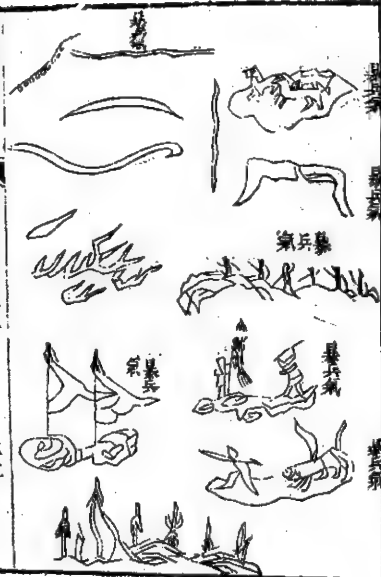 暴兵氣
暴兵氣
暴兵氣
暴兵氣
暴兵氣
暴兵氣